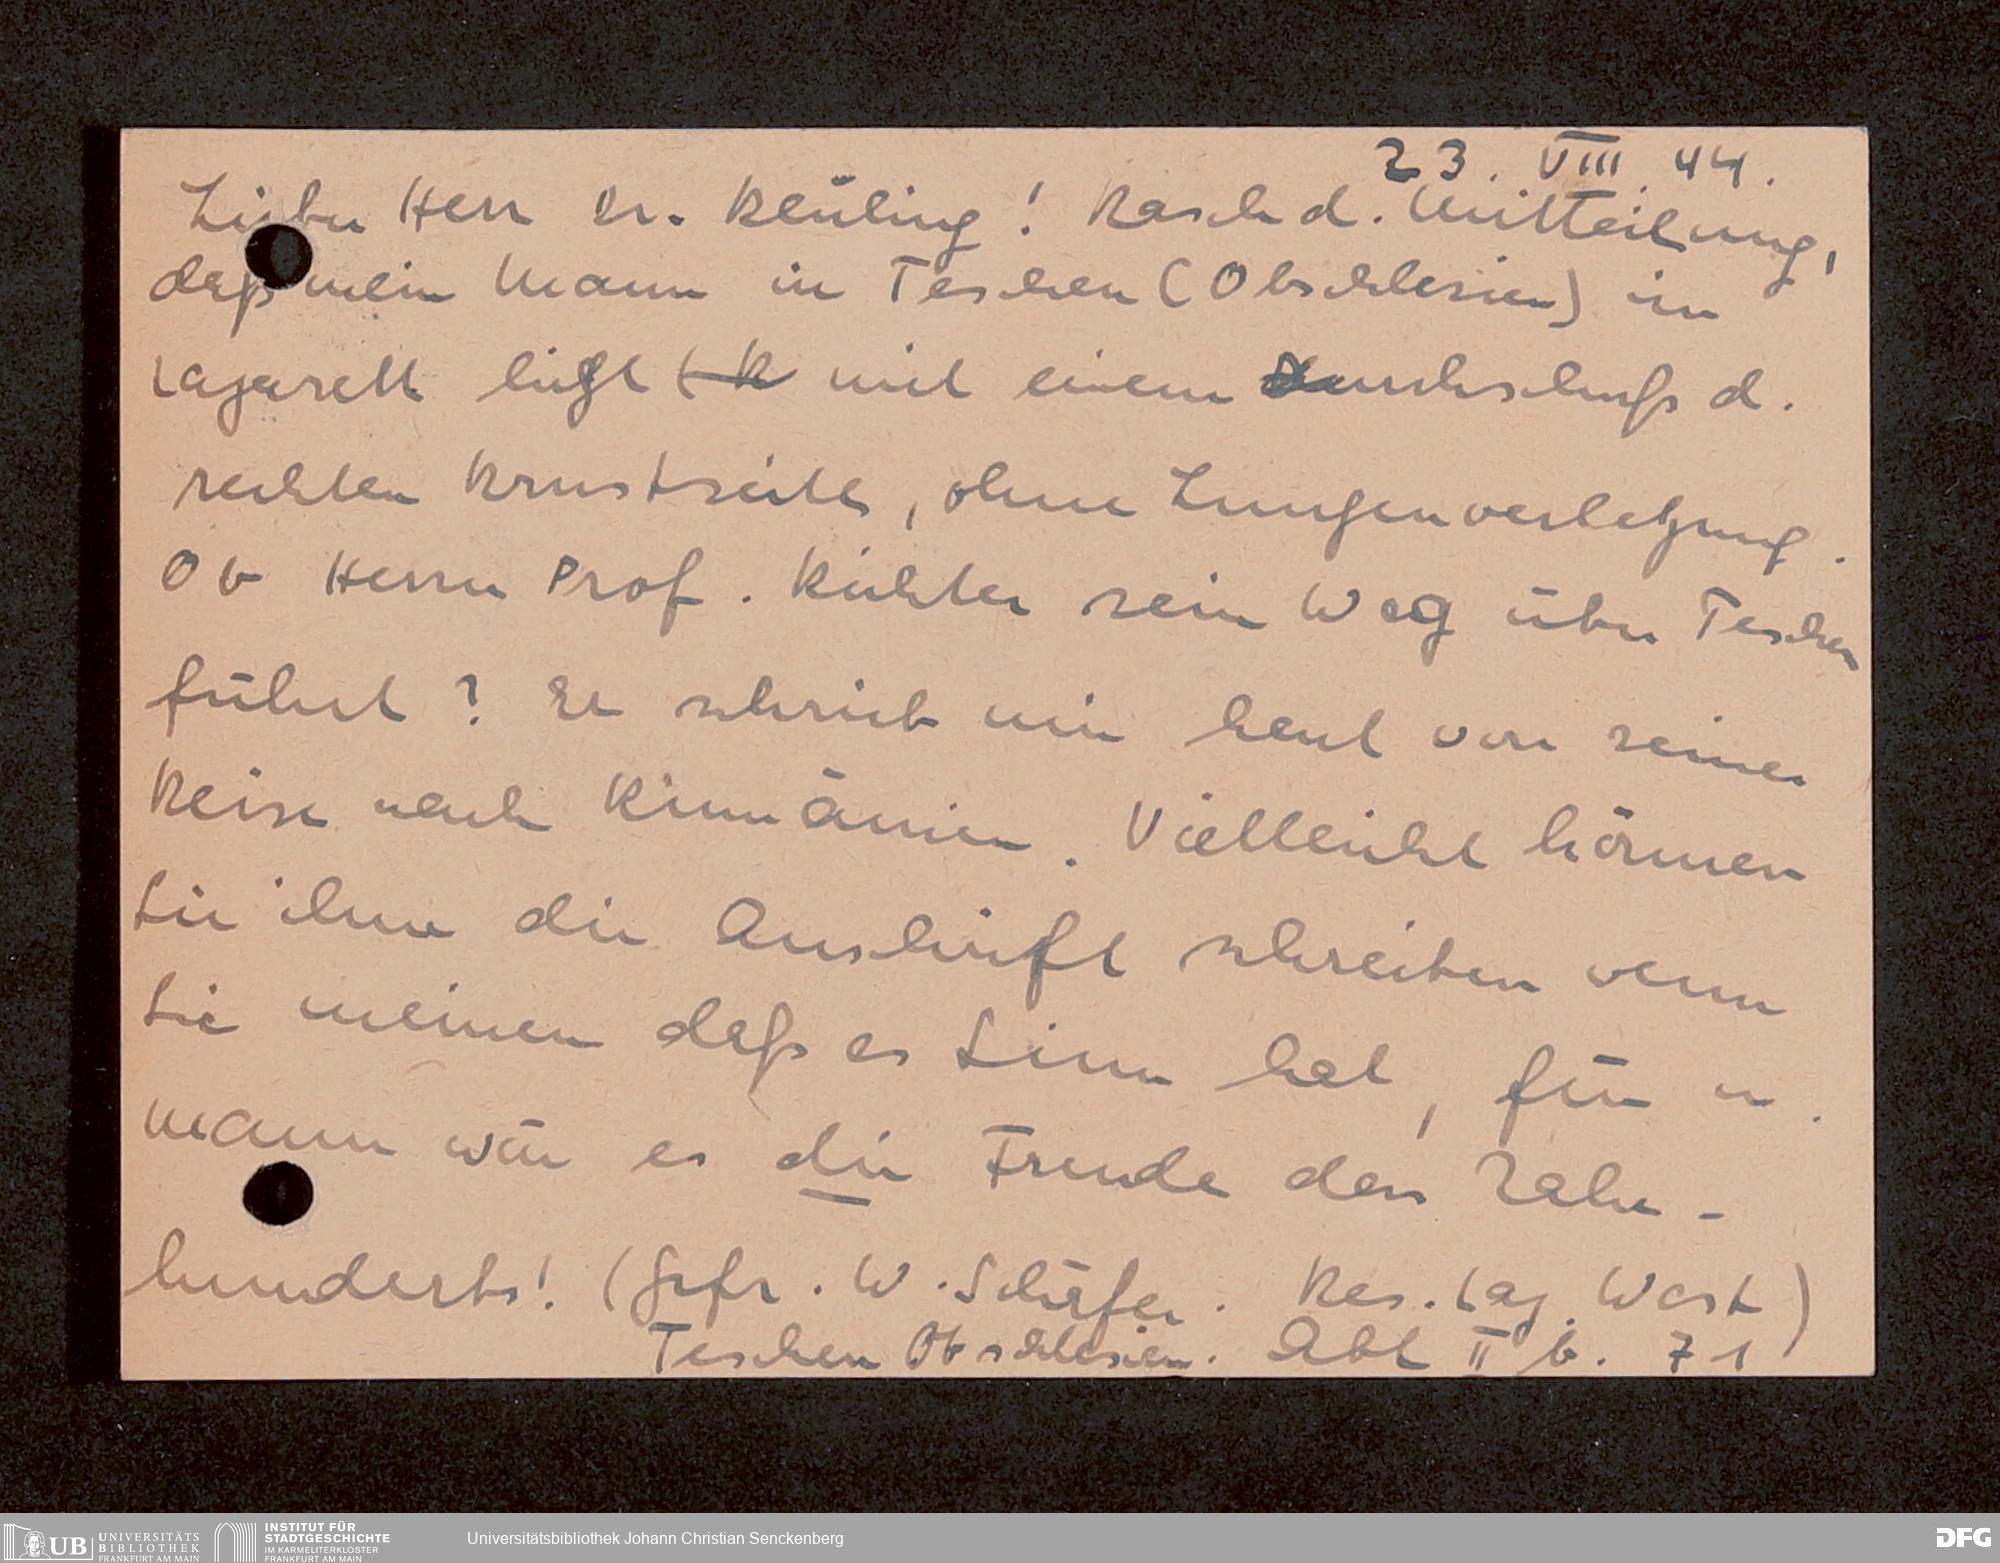 23. VIII. 44.
Lieber Herr Dr. Reuling! Rasch d. Mitteilung,
daß mein Mann in Teschen (Obschlesien) im
Lazarett liegt mit einem Durchschuß d.
rechten Brustseite, ohne Lungenverletzung.
Ob Herrn Prof. Richter sein Weg über Teschen
führt? Er schrieb mir heut von seiner
Reise nach Rumänien. Vielleicht können
Sie ihm die Anschrift schreiben wenn
Sie meinen daß es Sinn hat, für m.
Mann wär es die Freude des Jahr-
hunderts! (Gefr. W. Schäfer. Res. Laz. West)
Teschen Obschlesien. Abt II b. 71
UB UNIVERSITÄTS
BIBLIOTHEK
FRANKFURT AM MAIN
INSTITUT FÜR
STADTGESCHICHTE
IM KARMELITERKLOSTER
FRANKFURT AM MAIN
Universitätsbibliothek Johann Christian Senckenberg
DFG